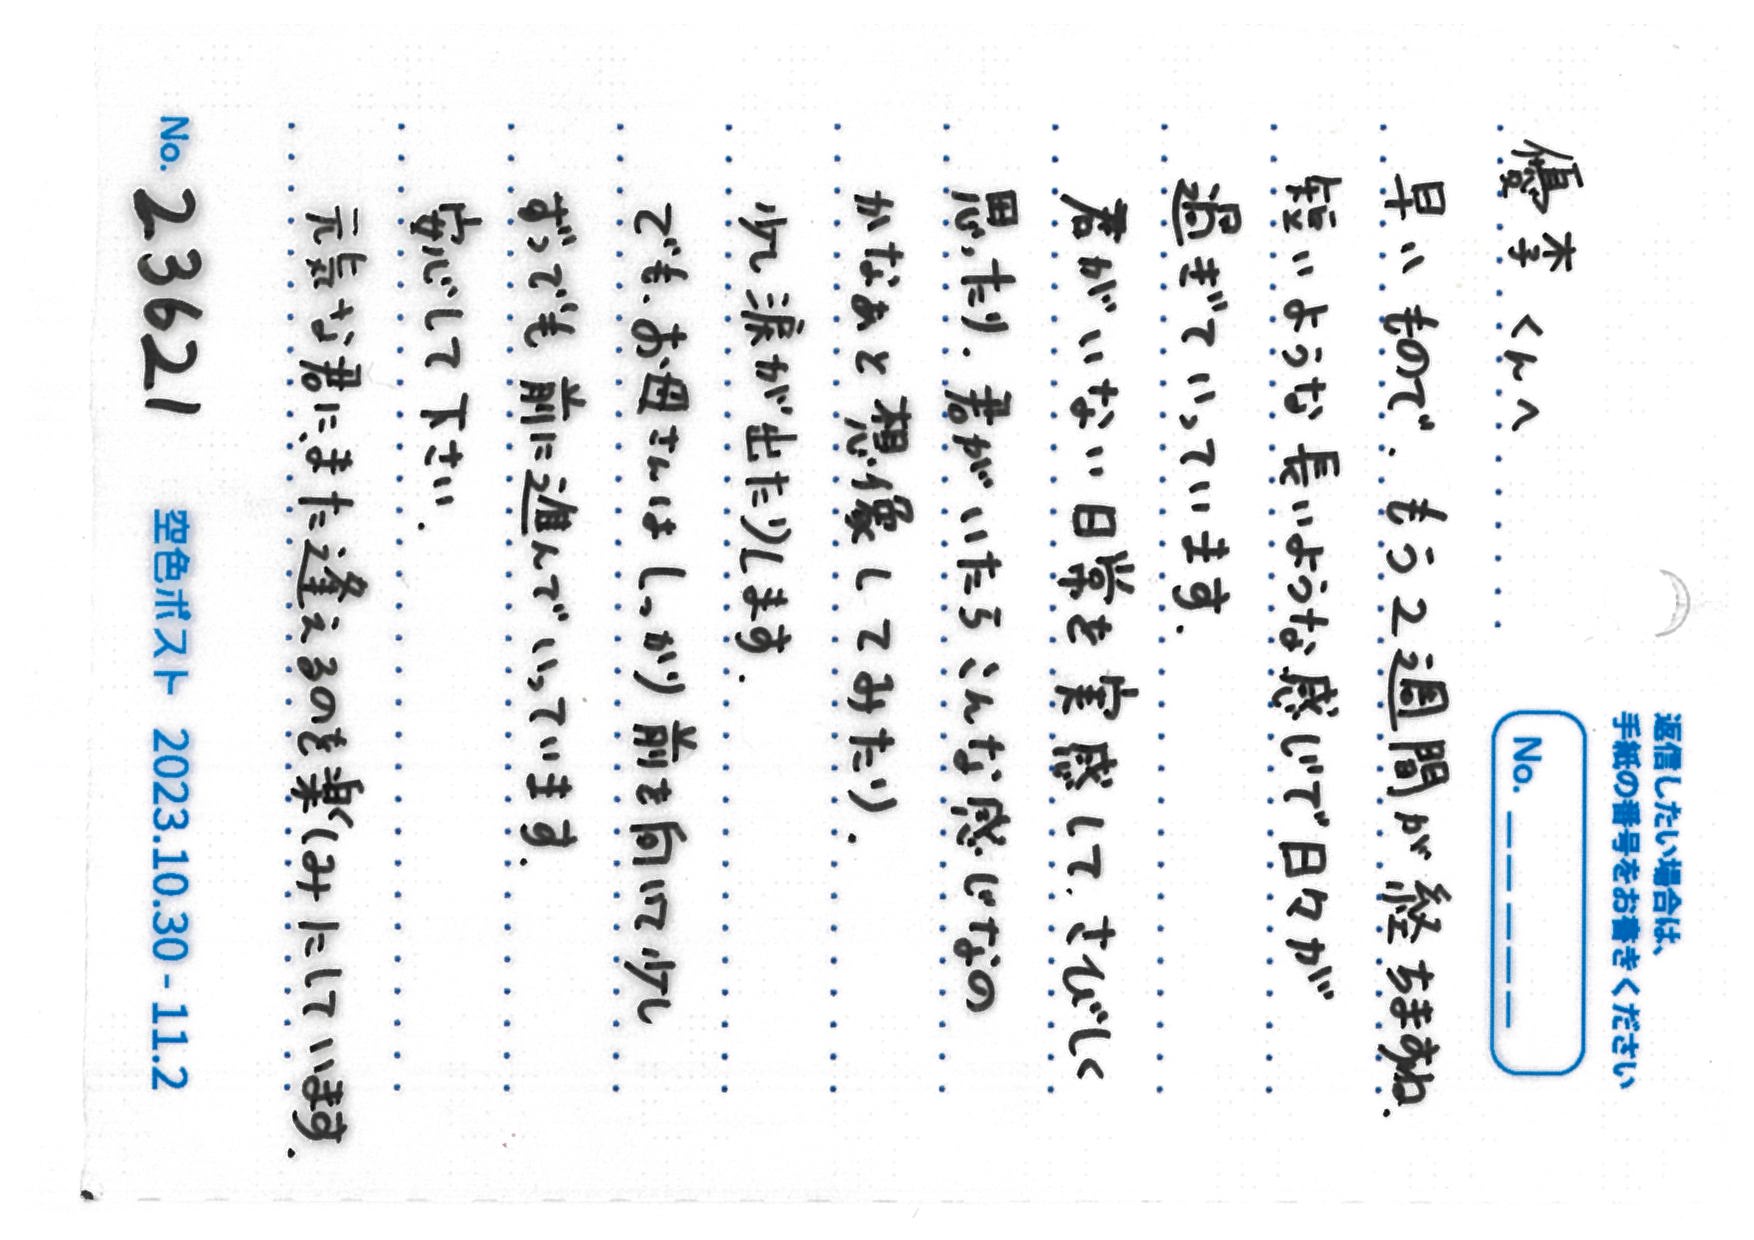 返信したい場合は、
手紙の番号をお書きください
No. _ _ _ _ _
優李くんへ
早いもので、もう2週間が経ちますね.
短いような長いような感じで日々が
過ぎていっています.
君がいない日常を実感して、さびしく
思ったり、君がいたらこんな感じなの
かなぁと想像してみたり.
少し涙が出たりします.
でも、お母さんはしっかり前を向いて少し
ずつでも前に進んでいっています.
安心して下さい.
元気な君に、また逢えるのを楽しみにしています.
No. 23621
空色ポスト 2023.10.30 - 11.2